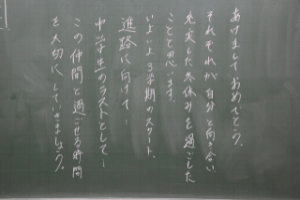 あけましておめでとう。
それぞれが自分と向き合い、
充実した冬休みを過ごした
ことと思います。
いよいよ3学期のスタート。
進路に向けて―
中学生のラストとして―
この仲間と過ごせる時間
を大切にしていきましょう。